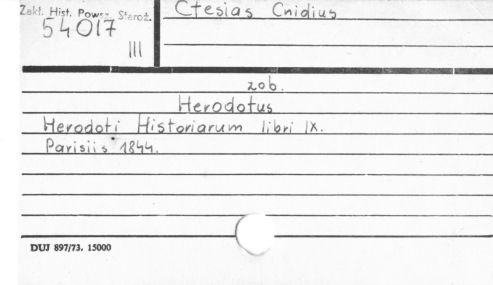 Zakł. Hist. Powsz. Staroż.
54017
III
Ctesias Cnidius
zob.
Herodotus
Herodoti Historiarum libri IX.
Parisiis 1844.
DUJ 897/73. 15000